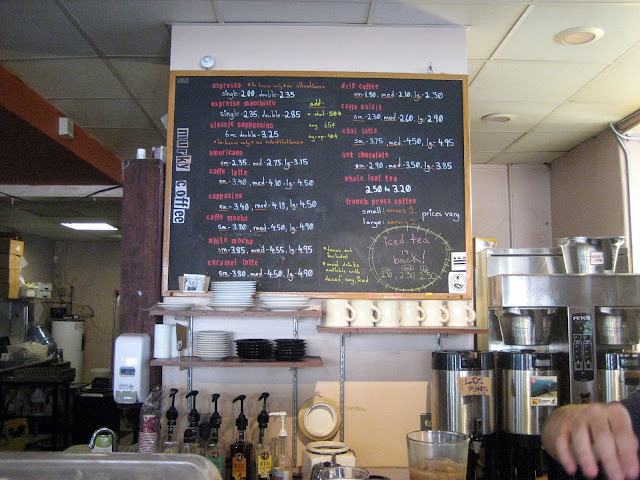 murky
coffee
espresso
single-2.00, double-2.35
espresso macchiato
single-2.35, double-2.85
classic cappuccino
6 oz double-3.25
americano
sm-2.35, med-2.75, lg-3.15
caffe latte
sm-3.40, med-4.10, lg-4.50
cappuccino
sm-3.40, med-4.10, lg-4.50
caffe mocha
sm-3.80, med-4.50, lg-4.90
white mocha
sm-3.85, med-4.55, lg-4.95
caramel latte
sm-3.80, med-4.50, lg-4.90
add:
shot-50¢
soy 65¢
syrup-40¢
drip coffee
sm-1.90, med-2.10, lg-2.30
caffe aulait
sm-2.30, med-2.60, lg-2.90
chai latte
sm-3.75, med-4.50, lg-4.95
hot chocolate
sm-2.90, med-3.50, lg-3.85
whole leaf tea
2.50 to 3.20
french press coffee
small: serves 1
large: serves 2
prices vary
*taxes not
included
*most drinks
available with
decaf, soy, iced
iced tea
is
back!
FETCO
LOS